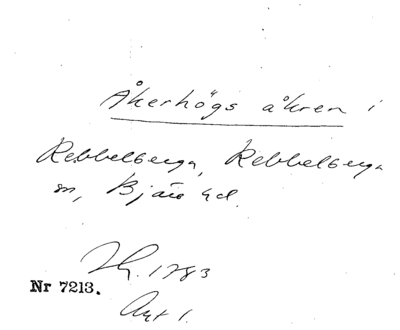 Åkerhögs åkren i
Rebbelberga, Rebbelberga
sn, Bjäre hd.
1783
Nr 7213.
Akt 1.